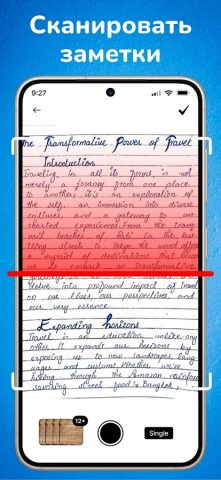 Сканировать
заметки
9:27
the Transformative Power of Travel
Introduction
Traveling, in all its forms, is not
merely a journey from one place
to another; it is an exploration of
the self, an immersion into diverse
cultures, and a gateway to un-
charted experiences. From the tranq
beaches of Bali to the bus-
tling streets to Tokyo, the word offers
a myriad of destinations that
us to embark on transformative
delve into profound impact of travel
on our lives, our perspectives, and
our very essence.
Expanding horizons
Travel is an education unlike any
other. It expands our horizons by
exposing us to new landscapes, lang-
uages and customs. Whether we're
through the Amazon rainfores
savouring street food in Bangkok,
12+
Single